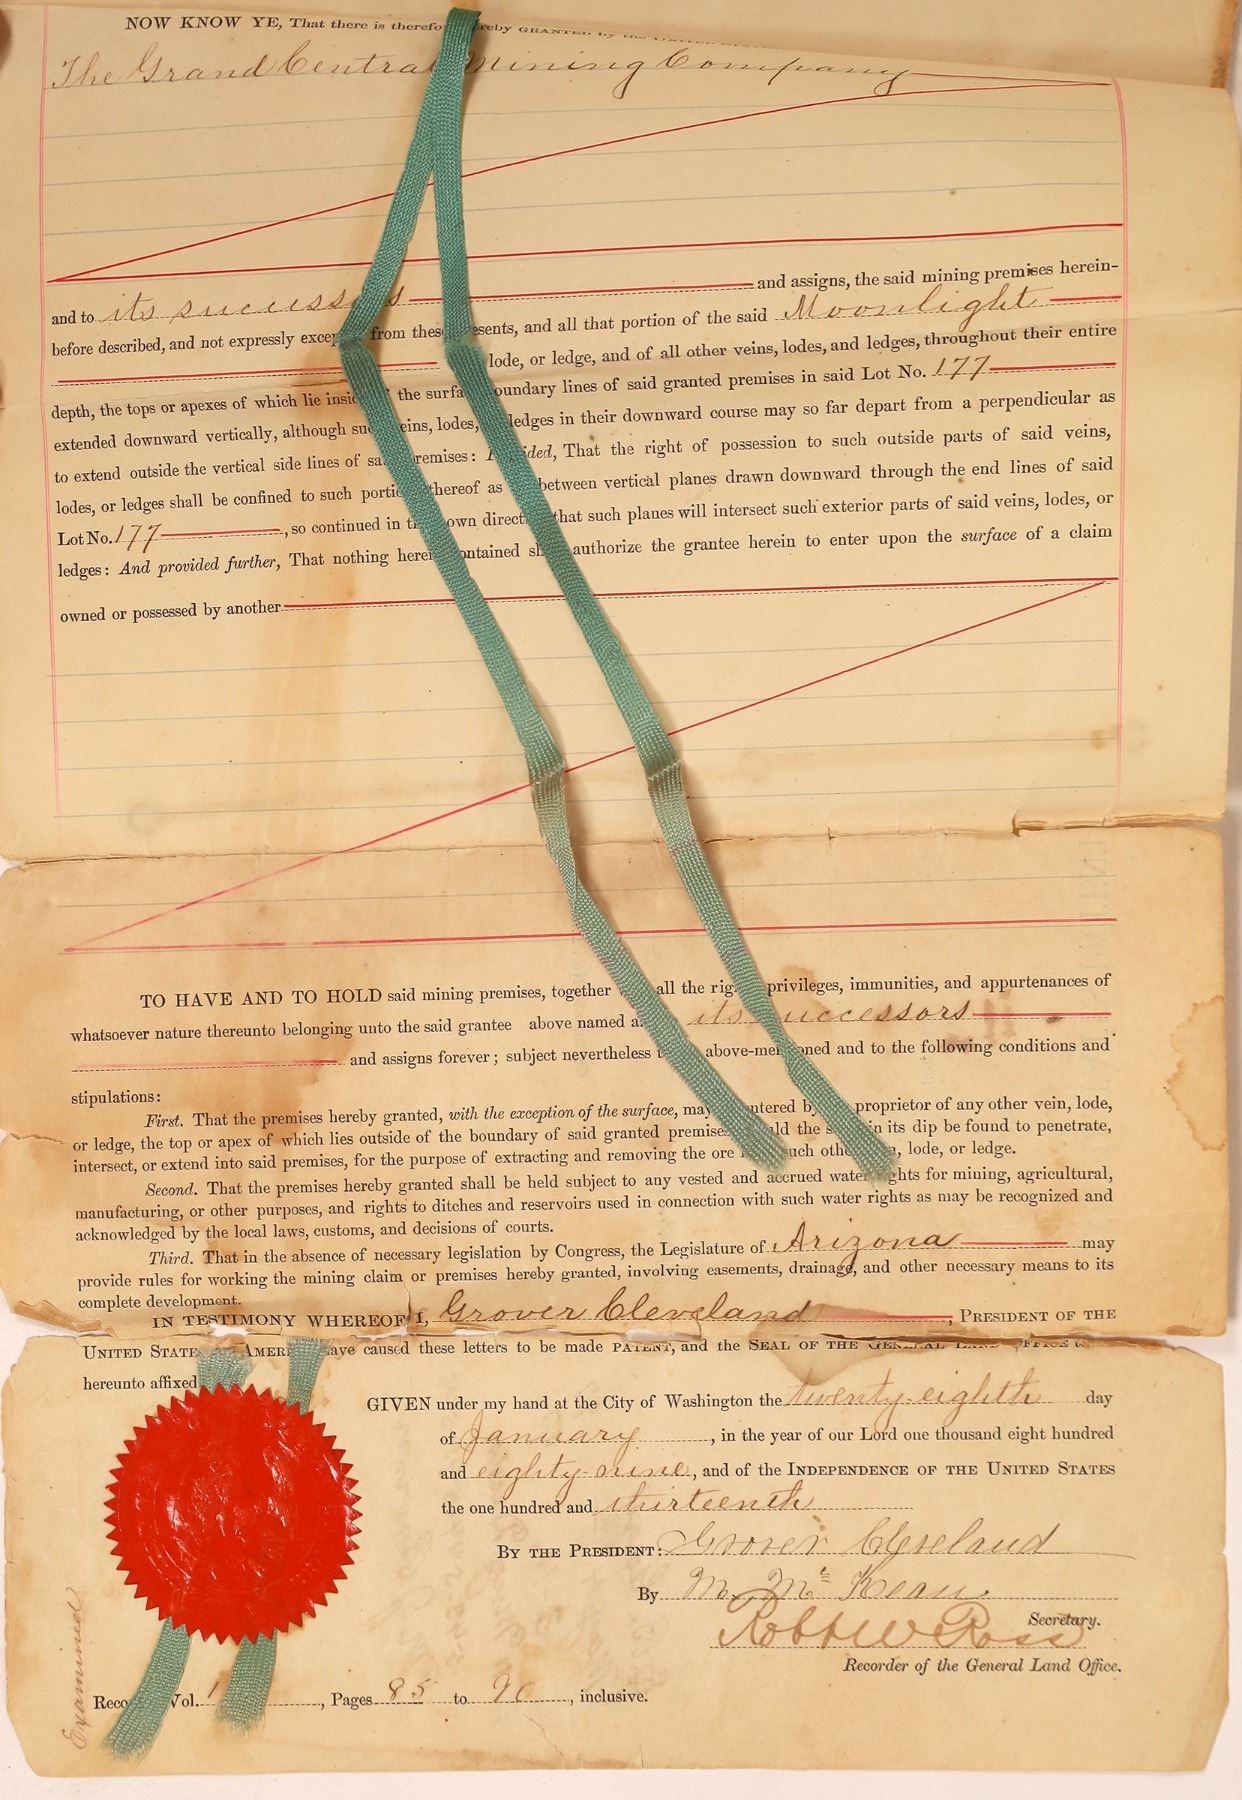 NOW KNOW YE, That there is therefo reby GRANTED by the
The Grand Central Mining Company
and to its success s and assigns, the said mining premises herein-
before described, and not expressly excep from these esents, and all that portion of the said Moonlight
lode, or ledge, and of all other veins, lodes, and ledges, throughout their entire
depth, the tops or apexes of which lie insid f the surfa oundary lines of said granted premises in said Lot No. 177
extended downward vertically, although suc eins, lodes, ledges in their downward course may so far depart from a perpendicular as
to extend outside the vertical side lines of sa remises: P ided, That the right of possession to such outside parts of said veins,
lodes, or ledges shall be confined to such portio thereof as between vertical planes drawn downward through the end lines of said
Lot No. 177, so continued in th own direct that such planes will intersect such exterior parts of said veins, lodes, or
ledges: And provided further, That nothing herei ontained sh authorize the grantee herein to enter upon the surface of a claim
owned or possessed by another
TO HAVE AND TO HOLD said mining premises, together all the rig privileges, immunities, and appurtenances of
whatsoever nature thereunto belonging unto the said grantee above named a its uccessors
and assigns forever; subject nevertheless t above-men oned and to the following conditions and
stipulations:
First. That the premises hereby granted, with the exception of the surface, may ntered by proprietor of any other vein, lode,
or ledge, the top or apex of which lies outside of the boundary of said granted premises ld the s in its dip be found to penetrate,
intersect, or extend into said premises, for the purpose of extracting and removing the ore uch othe , lode, or ledge.
Second. That the premises hereby granted shall be held subject to any vested and accrued water ghts for mining, agricultural,
manufacturing, or other purposes, and rights to ditches and reservoirs used in connection with such water rights as may be recognized and
acknowledged by the local laws, customs, and decisions of courts.
Third. That in the absence of necessary legislation by Congress, the Legislature of Arizona may
provide rules for working the mining claim or premises hereby granted, involving easements, drainage, and other necessary means to its
complete development.
IN TESTIMONY WHEREOF I, Grover Cleveland, PRESIDENT OF THE
UNITED STATE AMERI ave caused these letters to be made PATENT, and the SEAL OF THE GENERAL LAND OFFICE
hereunto affixed
GIVEN under my hand at the City of Washington the twenty-eighth day
of January, in the year of our Lord one thousand eight hundred
and eighty-nine, and of the INDEPENDENCE OF THE UNITED STATES
the one hundred and thirteenth
BY THE PRESIDENT: Grover Cleveland
By M. McKean
Secretary.
Robt W Ross
Recorder of the General Land Office.
Reco Vol. 1 , Pages 85 to 90, inclusive.
Examined